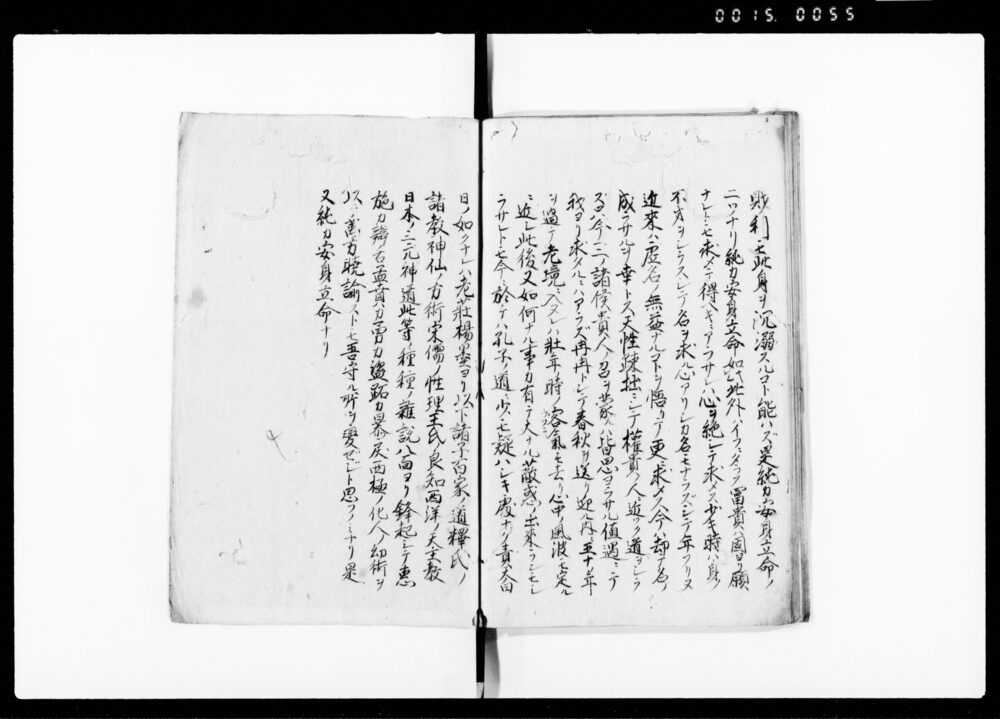 0015.0055
財利ニ此身ヲ沉溺スルコト能ハズ是純カ安身立命ノ
二ツナリ純カ安身立命如此此外ニイフニタラズ冨貴ハ固ヨリ願
ナレトモ求メテ得ヘキニアラサレハ心ヲ絶シテ求メス少キ時ハ身ノ
不才ヲシラスシテ名ヲ求ル心アリシカ名モナラズシテ年フリヌ
近來ハ虚名ノ無益ナルコトヲ悟リテ更ニ求メス今ハ却テ名ノ
成ラサルヲ幸トス天性疎拙ニシテ權貴ノ人ニ近ツク道ヲシラ
ズ今二三ノ諸侯貴人ノ召ヲ蒙ルハ皆思ヨラサル値遇ニテ
我ヨリ求タルニハアラズ冉冉トシテ春秋ヲ送ノ迎ル内ニ五十年
ヲ過テ老境ニ入ヌレハ壯年ノ時ノ客氣モ去リ心中ノ風波モ定ル
ニ近シ此後又如何ナル事カ有テ大ナル蔽惑ノ出來ランモシ
ラサレトモ今ニ於テハ孔子ノ道ニ少シモ疑ハシキ處ナク青天白
日ノ如クナレハ老莊楊墨ヨリ以下諸子百家ノ道釋氏ノ
諸教神仙ノ方術宋儒ノ性理王氏ノ良知西洋ノ天主教
日本ノ三元神道此等ノ種種ノ雜説八面ヨリ鋒起シテ惠
施カ辯古孟賁カ勇力盗跖カ暴戻西極ノ化人ノ幻術ヲ
以テ萬方曉諭ストモ吾守ル所ヲ變ゼシト思フノミナリ是
又純カ安身立命ナリ